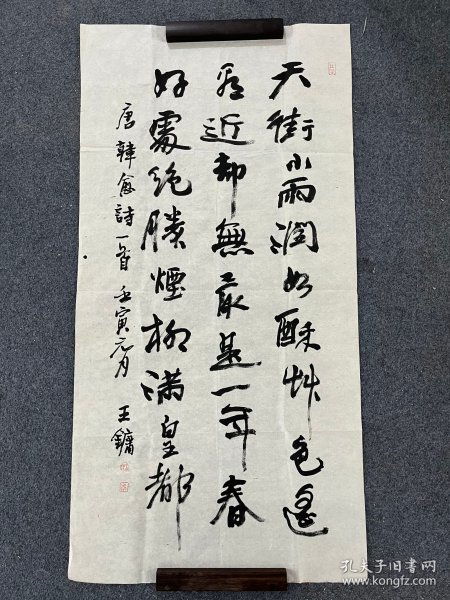 天街小雨润如酥草色遥
看近却無最是一年春
好處絕勝煙柳滿皇都
唐韓愈詩一首 壬寅元月 王鏞
孔夫子旧书网
www.kongfz.com